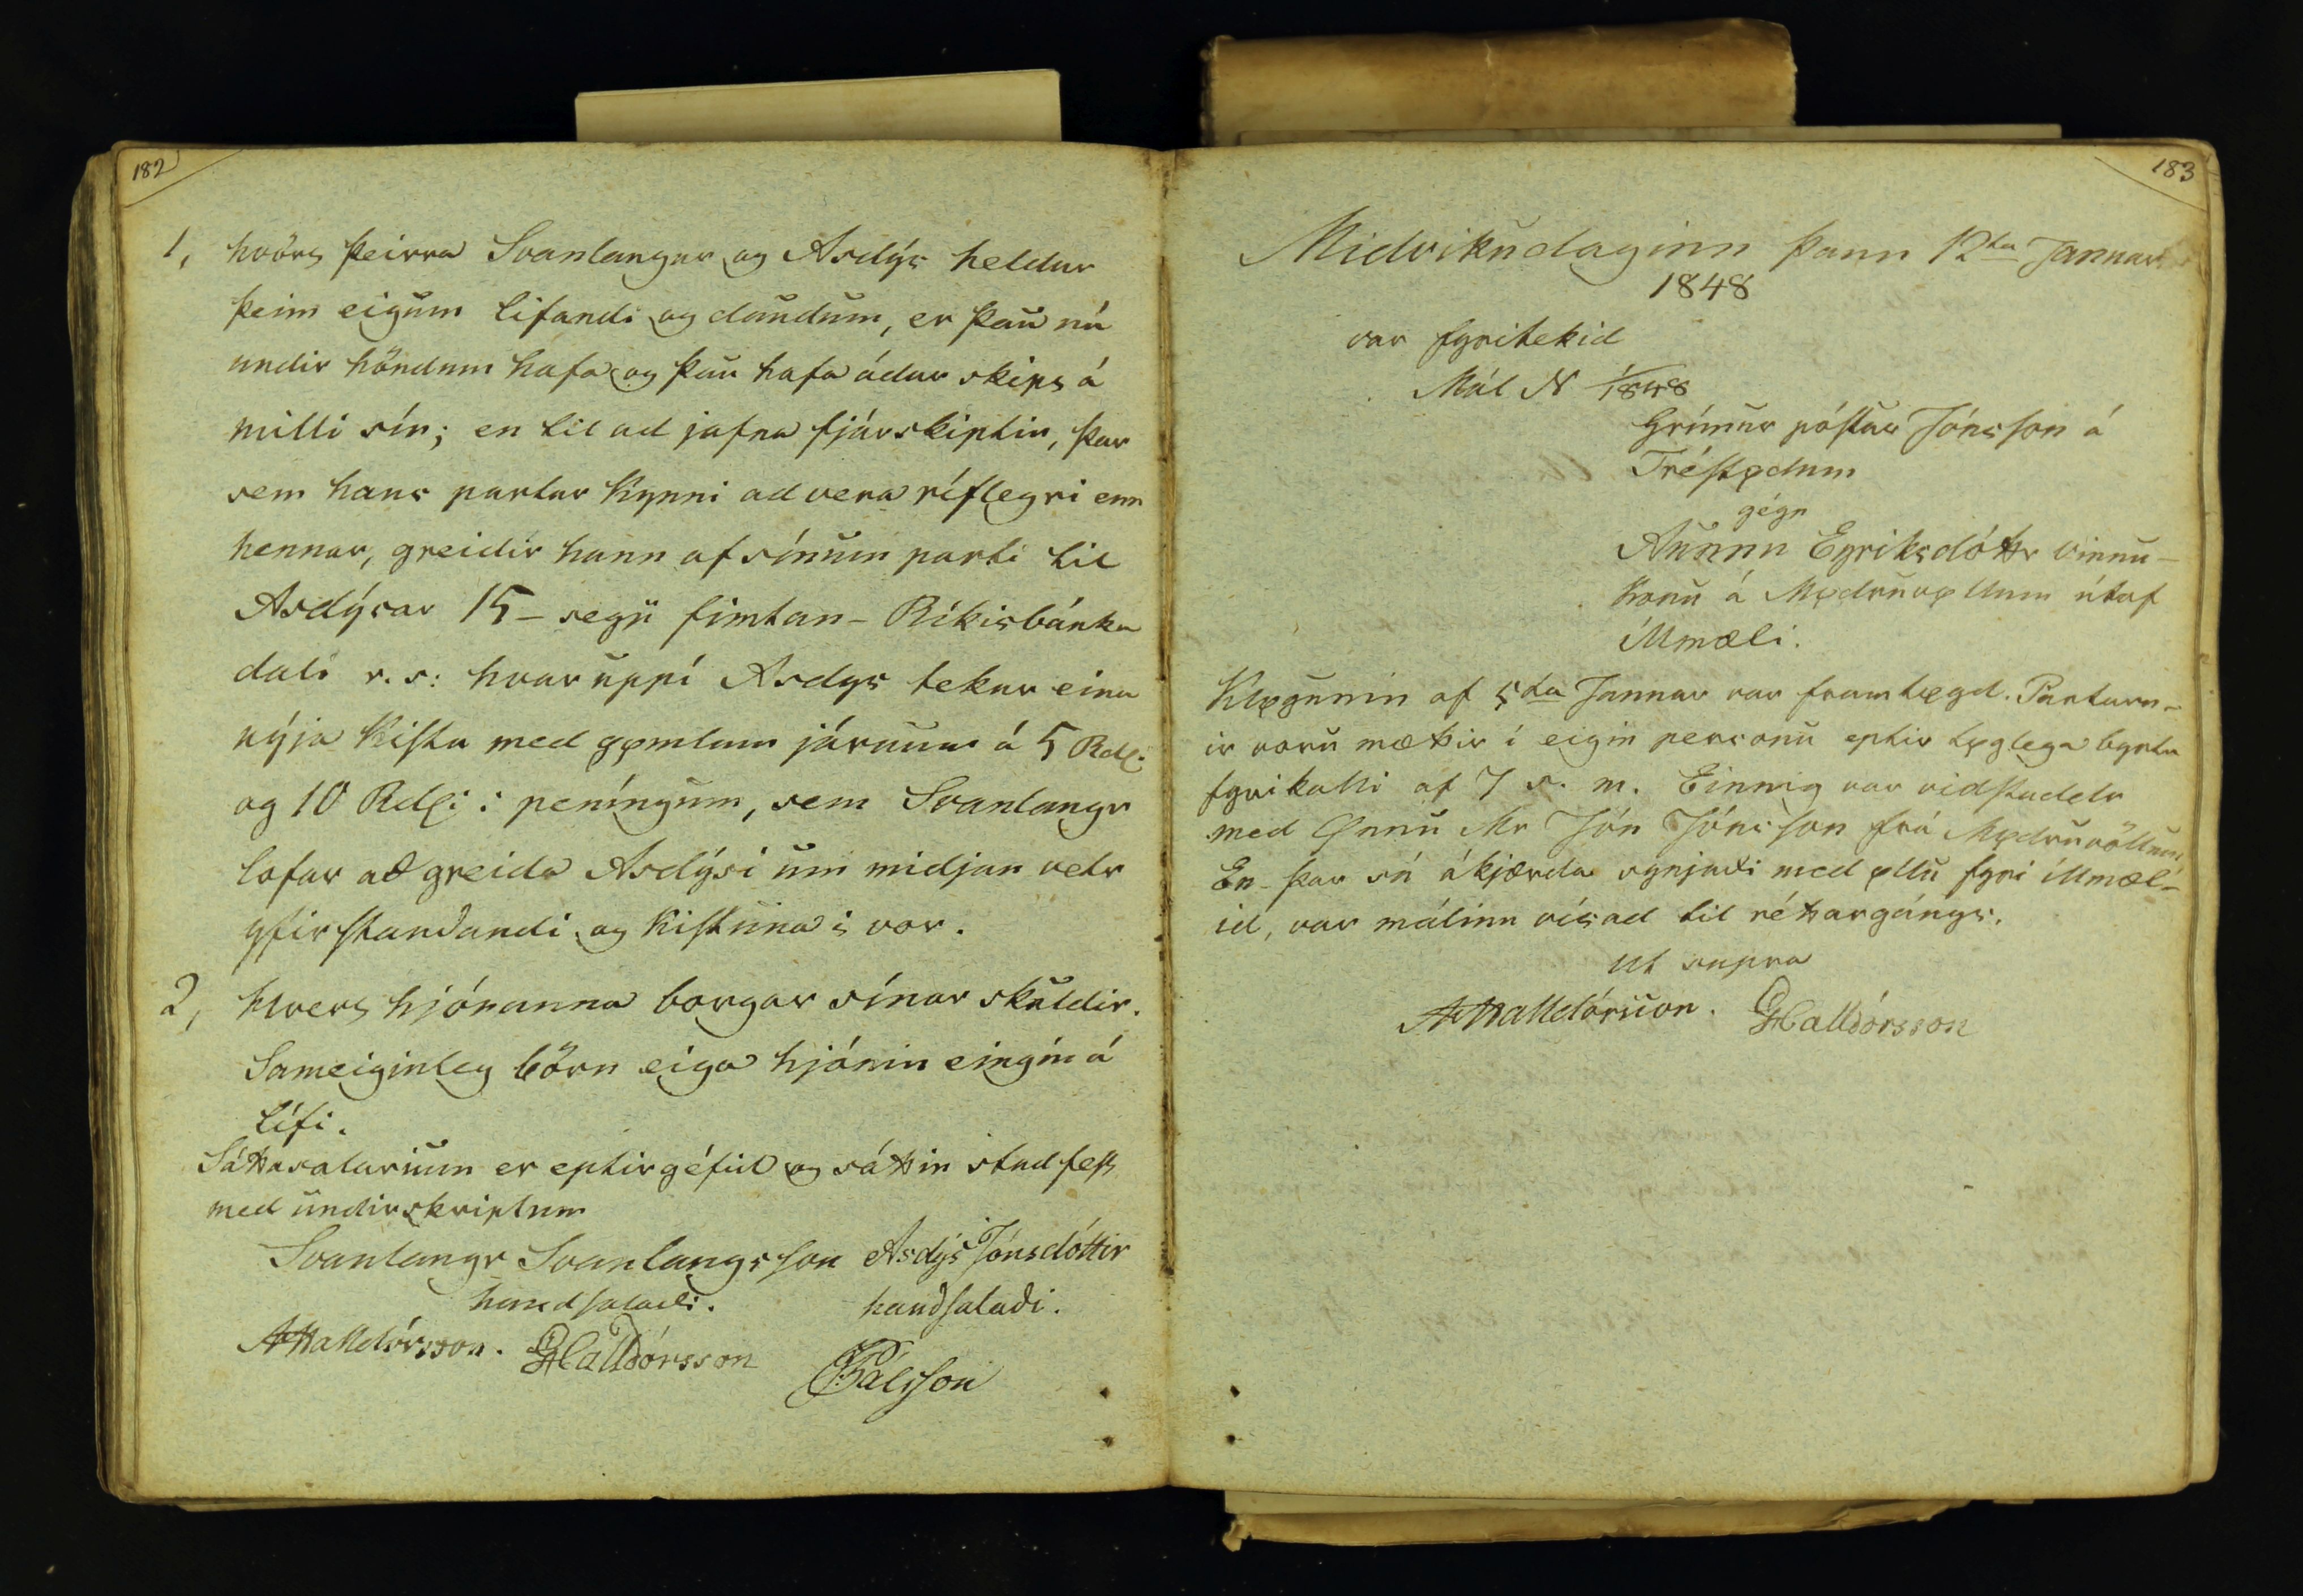 182
1, hvörs þeirra Svanlaugur og Asdýs heldur
þeim eigum lifandi og daudum, er þau nú
undir höndum hafa og þau hafa ádur skips á
milli sín; en til ad jafna fjárskiptin, þar
sem hans partur kynni ad vera ríflegri enn
hennar, greidir hann af sínum parti til
Asdýsar 15 – segji fimtan – Ríkisbánka
dali r. s: hvaruppí Asdys tekur eina
nýja kistu med gømlum járnum á 5 Rdl.
og 10 Rdl: i peníngum, sem Svanlaugr
lofar að greida Asdýsi um midjan vetr
yfirstandandi og kistuna i vor.
2, Hvers hjónanna borgar sínar skuldir.
Sameiginleg börn eiga hjónin eingin á
lífi.
Sáttasalarium er eptirgéfid og sáttin stadfest
med undirskriptum
Svanlaugr Svanlaugsson Asdýs Jónsdóttir
handsaladi. handsalaði.
AHalldórsson. GHalldórsson
Pálsson
183
Midvikudaginn þann 12ta Januar
1848
var fyritekid
Mál N 1/1848
Grímur póstur Jónsson á
Tréstødum
gégn
Aunnu Eyriksdóttr vinnu-
konu á Mødruvøllum útaf
illmæli.
Kløgunin af 5ta Januar var framløgd. Partarn-
ir voru mættir í eigin personu eptir løglega byrtu
fyrikalli af 7 s. m. Einnig var vidstaddr
med Önnu Mr Jón Jónsson frá Mødruvöllum
En þar sú ákjærda synjadi med øllu fyri illmæl-
id, var málinu vísad til réttargángs.
Ut supra
AHalldórsson. GHalldórsson